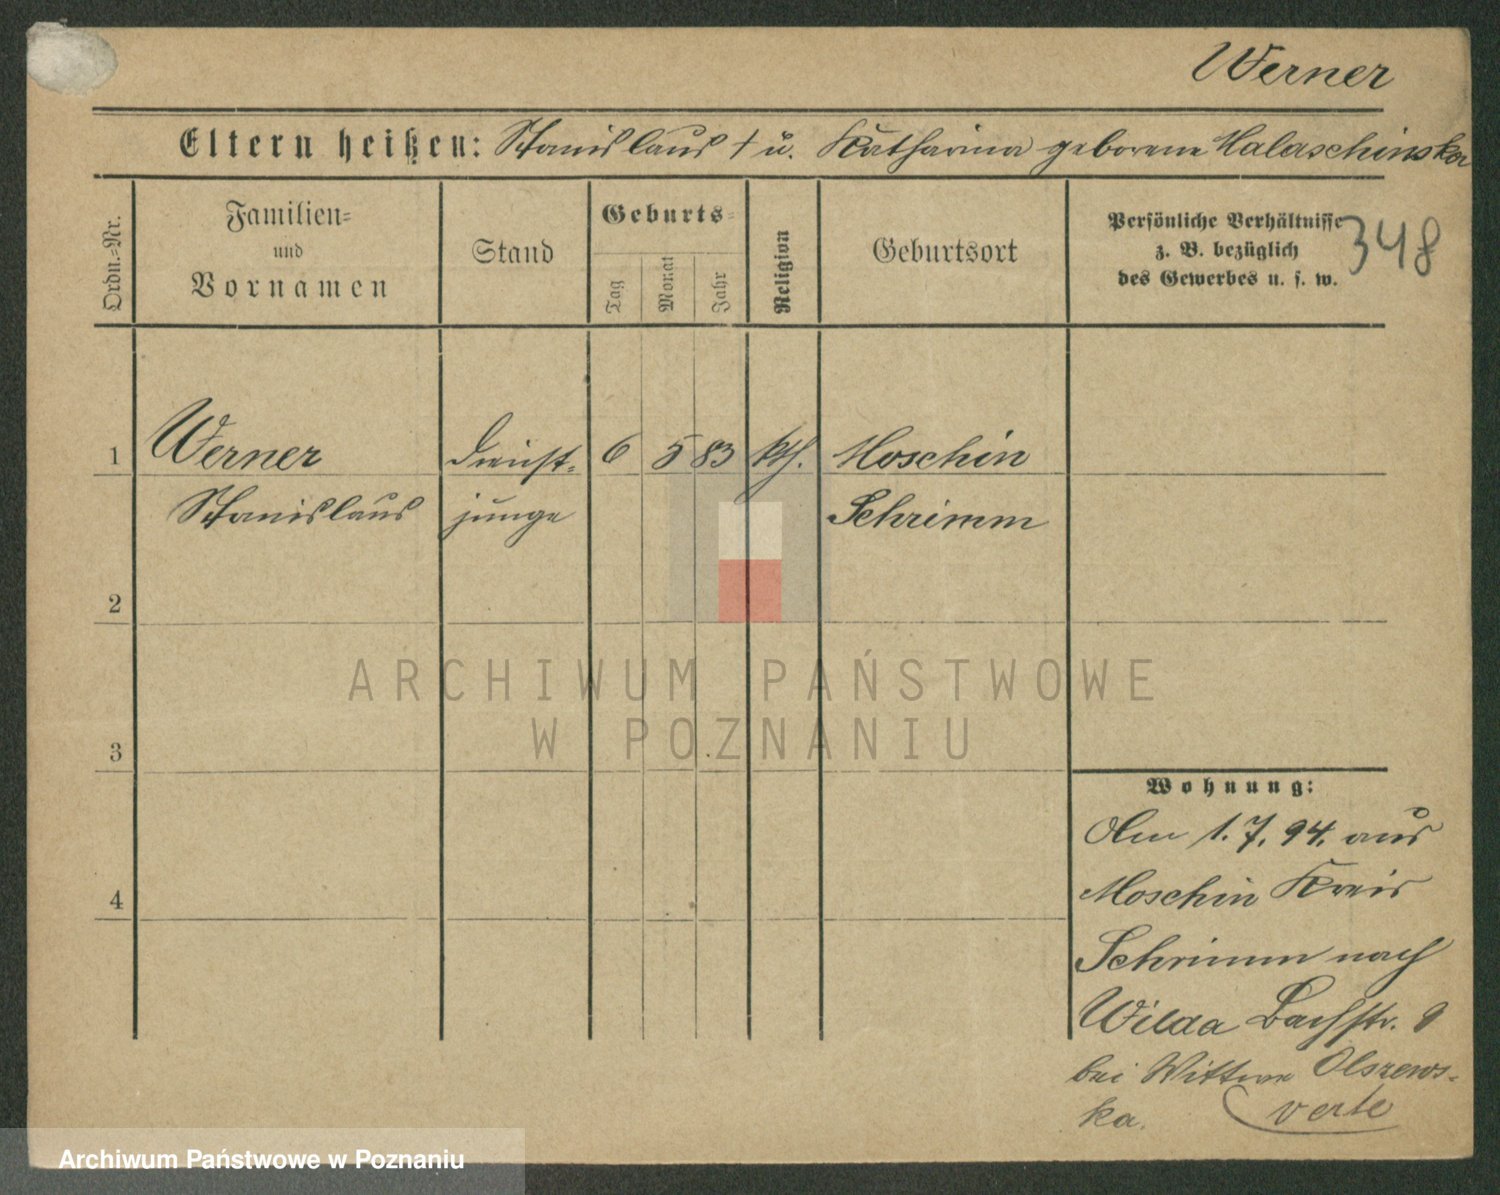 Werner
Eltern heißen: Stanislaus † u. Katharina geborene Halaschinska
Ordn.=Nr.
Familien=
und
Vornamen
Stand
Geburts=
Tag
Monat
Jahr
Religion
Geburtsort
Persönliche Verhältnisse
z. B. bezüglich
des Gewerbes u. s. w.
348
1 Werner Dienst- 6 5 83 kth. Moschin
Stanislaus junge Schrimm
2
3
4
ARCHIWUM PAŃSTWOWE
W POZNANIU
Wohnung:
Am 1.7.94. aus
Moschin Kreis
Schrimm nach
Wilda Bachstr. 9
bei Wittwe Olszews-
ka.
verte
Archiwum Państwowe w Poznaniu